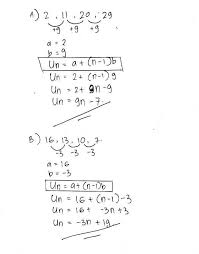 A) 2, 11, 20, 29
+9 +9 +9
a = 2
b = 9
Un = a + (n-1)b
Un = 2 + (n-1) 9
Un = 2 + 9n - 9
Un = 9n - 7
B) 16, 13, 10, 7
-3 -3 -3
a = 16
b = -3
Un = a + (n-1)b
Un = 16 + (n-1) -3
Un = 16 + -3n + 3
Un = -3n + 19